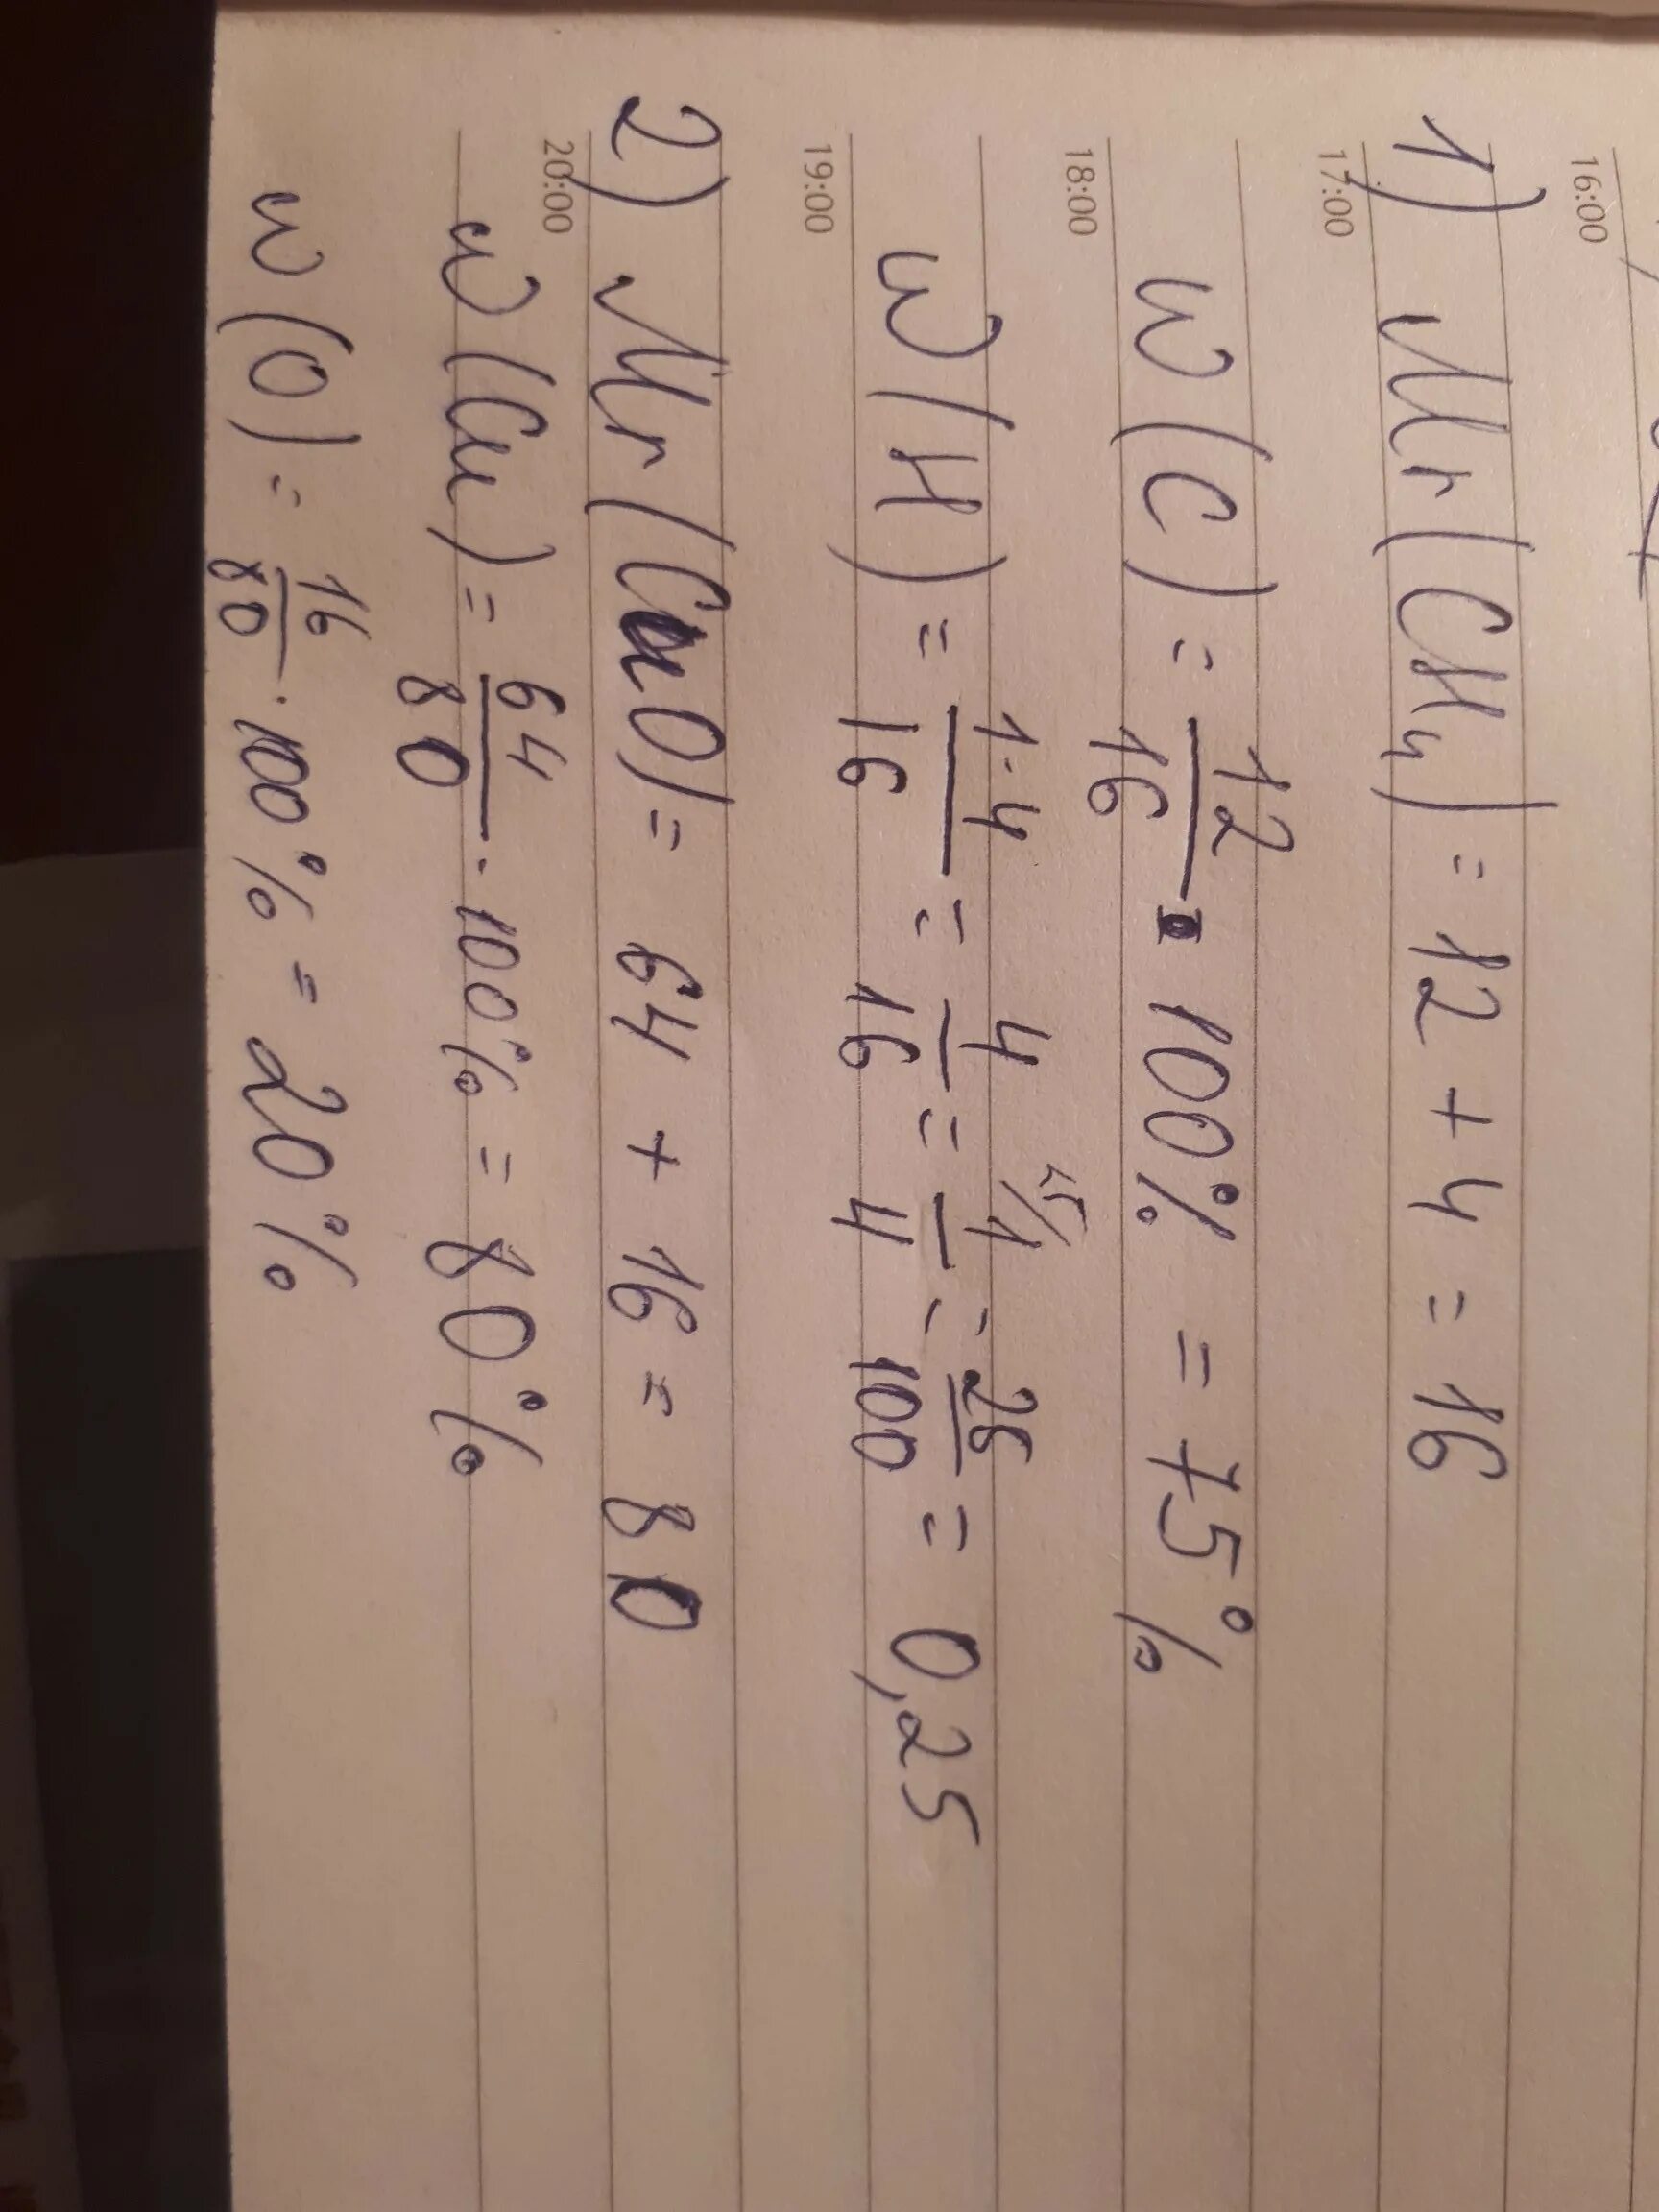 16:00
1) Mr(CH₄) = 12 + 4 = 16
17:00
w(C) = 12/16 · 100% = 75%
18:00
w(H) = 1·4/16 = 4/16 = 1/4 = 25/100 = 0,25
19:00
2) Mr(CuO) = 64 + 16 = 80
20:00
w(Cu) = 64/80 · 100% = 80%
w(O) = 16/80 · 100% = 20%